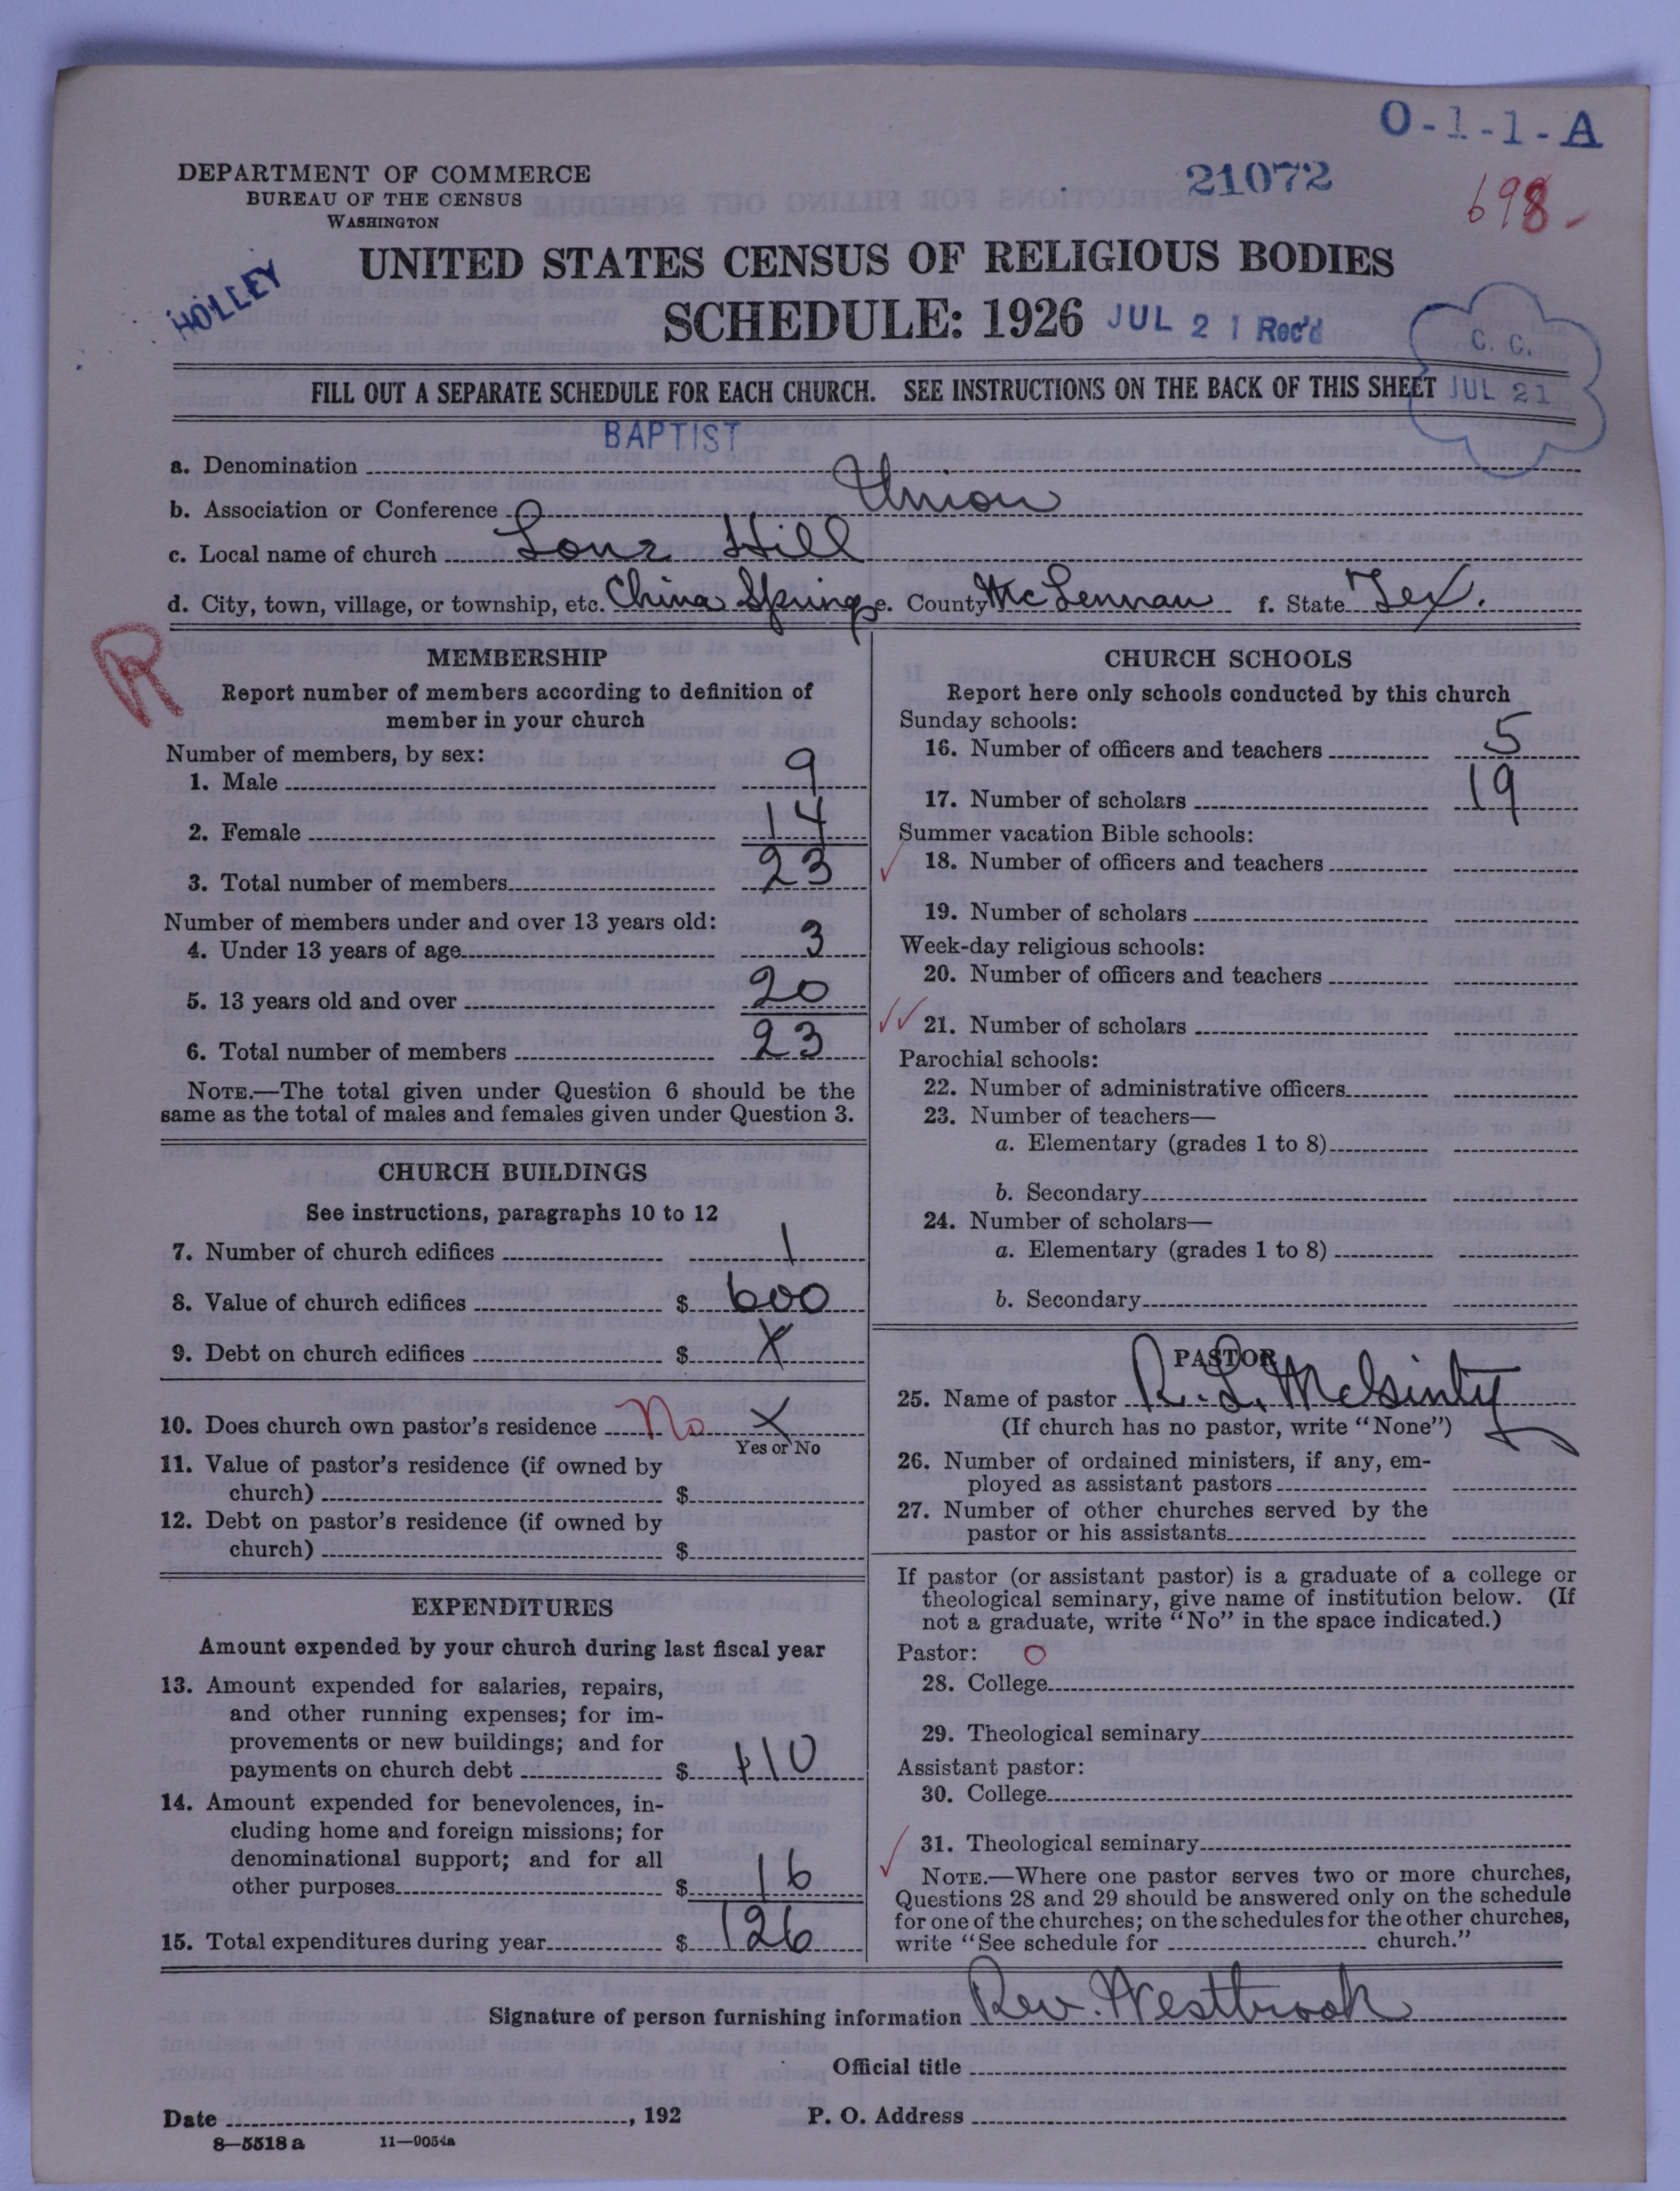 O-1-1-A
DEPARTMENT OF COMMERCE
BUREAU OF THE CENSUS
WASHINGTON
21072
698-
UNITED STATES CENSUS OF RELIGIOUS BODIES
HOLLEY
SCHEDULE: 1926 JUL 21 Rec'd
C. C.
JUL 21
FILL OUT A SEPARATE SCHEDULE FOR EACH CHURCH. SEE INSTRUCTIONS ON THE BACK OF THIS SHEET
BAPTIST
a. Denomination
b. Association or Conference Union
c. Local name of church Hill
d. City, town, village, or township, etc. China Springs e. County McLennan f. State Tex.
R
MEMBERSHIP
Report number of members according to definition of
member in your church
Number of members, by sex:
1. Male 9
2. Female 14
3. Total number of members 23
Number of members under and over 13 years old:
4. Under 13 years of age 3
5. 13 years old and over 20
6. Total number of members 23
NOTE.—The total given under Question 6 should be the
same as the total of males and females given under Question 3.
CHURCH BUILDINGS
See instructions, paragraphs 10 to 12
7. Number of church edifices 1
8. Value of church edifices $ 600
9. Debt on church edifices $ X
10. Does church own pastor's residence No X
Yes or No
11. Value of pastor's residence (if owned by
church) $
12. Debt on pastor's residence (if owned by
church) $
EXPENDITURES
Amount expended by your church during last fiscal year
13. Amount expended for salaries, repairs,
and other running expenses; for im-
provements or new buildings; and for
payments on church debt $ 110
14. Amount expended for benevolences, in-
cluding home and foreign missions; for
denominational support; and for all
other purposes $ 16
15. Total expenditures during year $ 126
CHURCH SCHOOLS
Report here only schools conducted by this church
Sunday schools:
16. Number of officers and teachers 5
17. Number of scholars 19
Summer vacation Bible schools:
18. Number of officers and teachers
19. Number of scholars
Week-day religious schools:
20. Number of officers and teachers
21. Number of scholars
Parochial schools:
22. Number of administrative officers
23. Number of teachers—
a. Elementary (grades 1 to 8)
b. Secondary
24. Number of scholars—
a. Elementary (grades 1 to 8)
b. Secondary
PASTOR
25. Name of pastor R. L. McGinty
(If church has no pastor, write "None")
26. Number of ordained ministers, if any, em-
ployed as assistant pastors
27. Number of other churches served by the
pastor or his assistants
If pastor (or assistant pastor) is a graduate of a college or
theological seminary, give name of institution below. (If
not a graduate, write "No" in the space indicated.)
Pastor: O
28. College
29. Theological seminary
Assistant pastor:
30. College
31. Theological seminary
NOTE.—Where one pastor serves two or more churches,
Questions 28 and 29 should be answered only on the schedule
for one of the churches; on the schedules for the other churches,
write "See schedule for church."
Signature of person furnishing information Rev. Westbrook
Official title
Date , 192 P. O. Address
8—5518 a 11—9054a